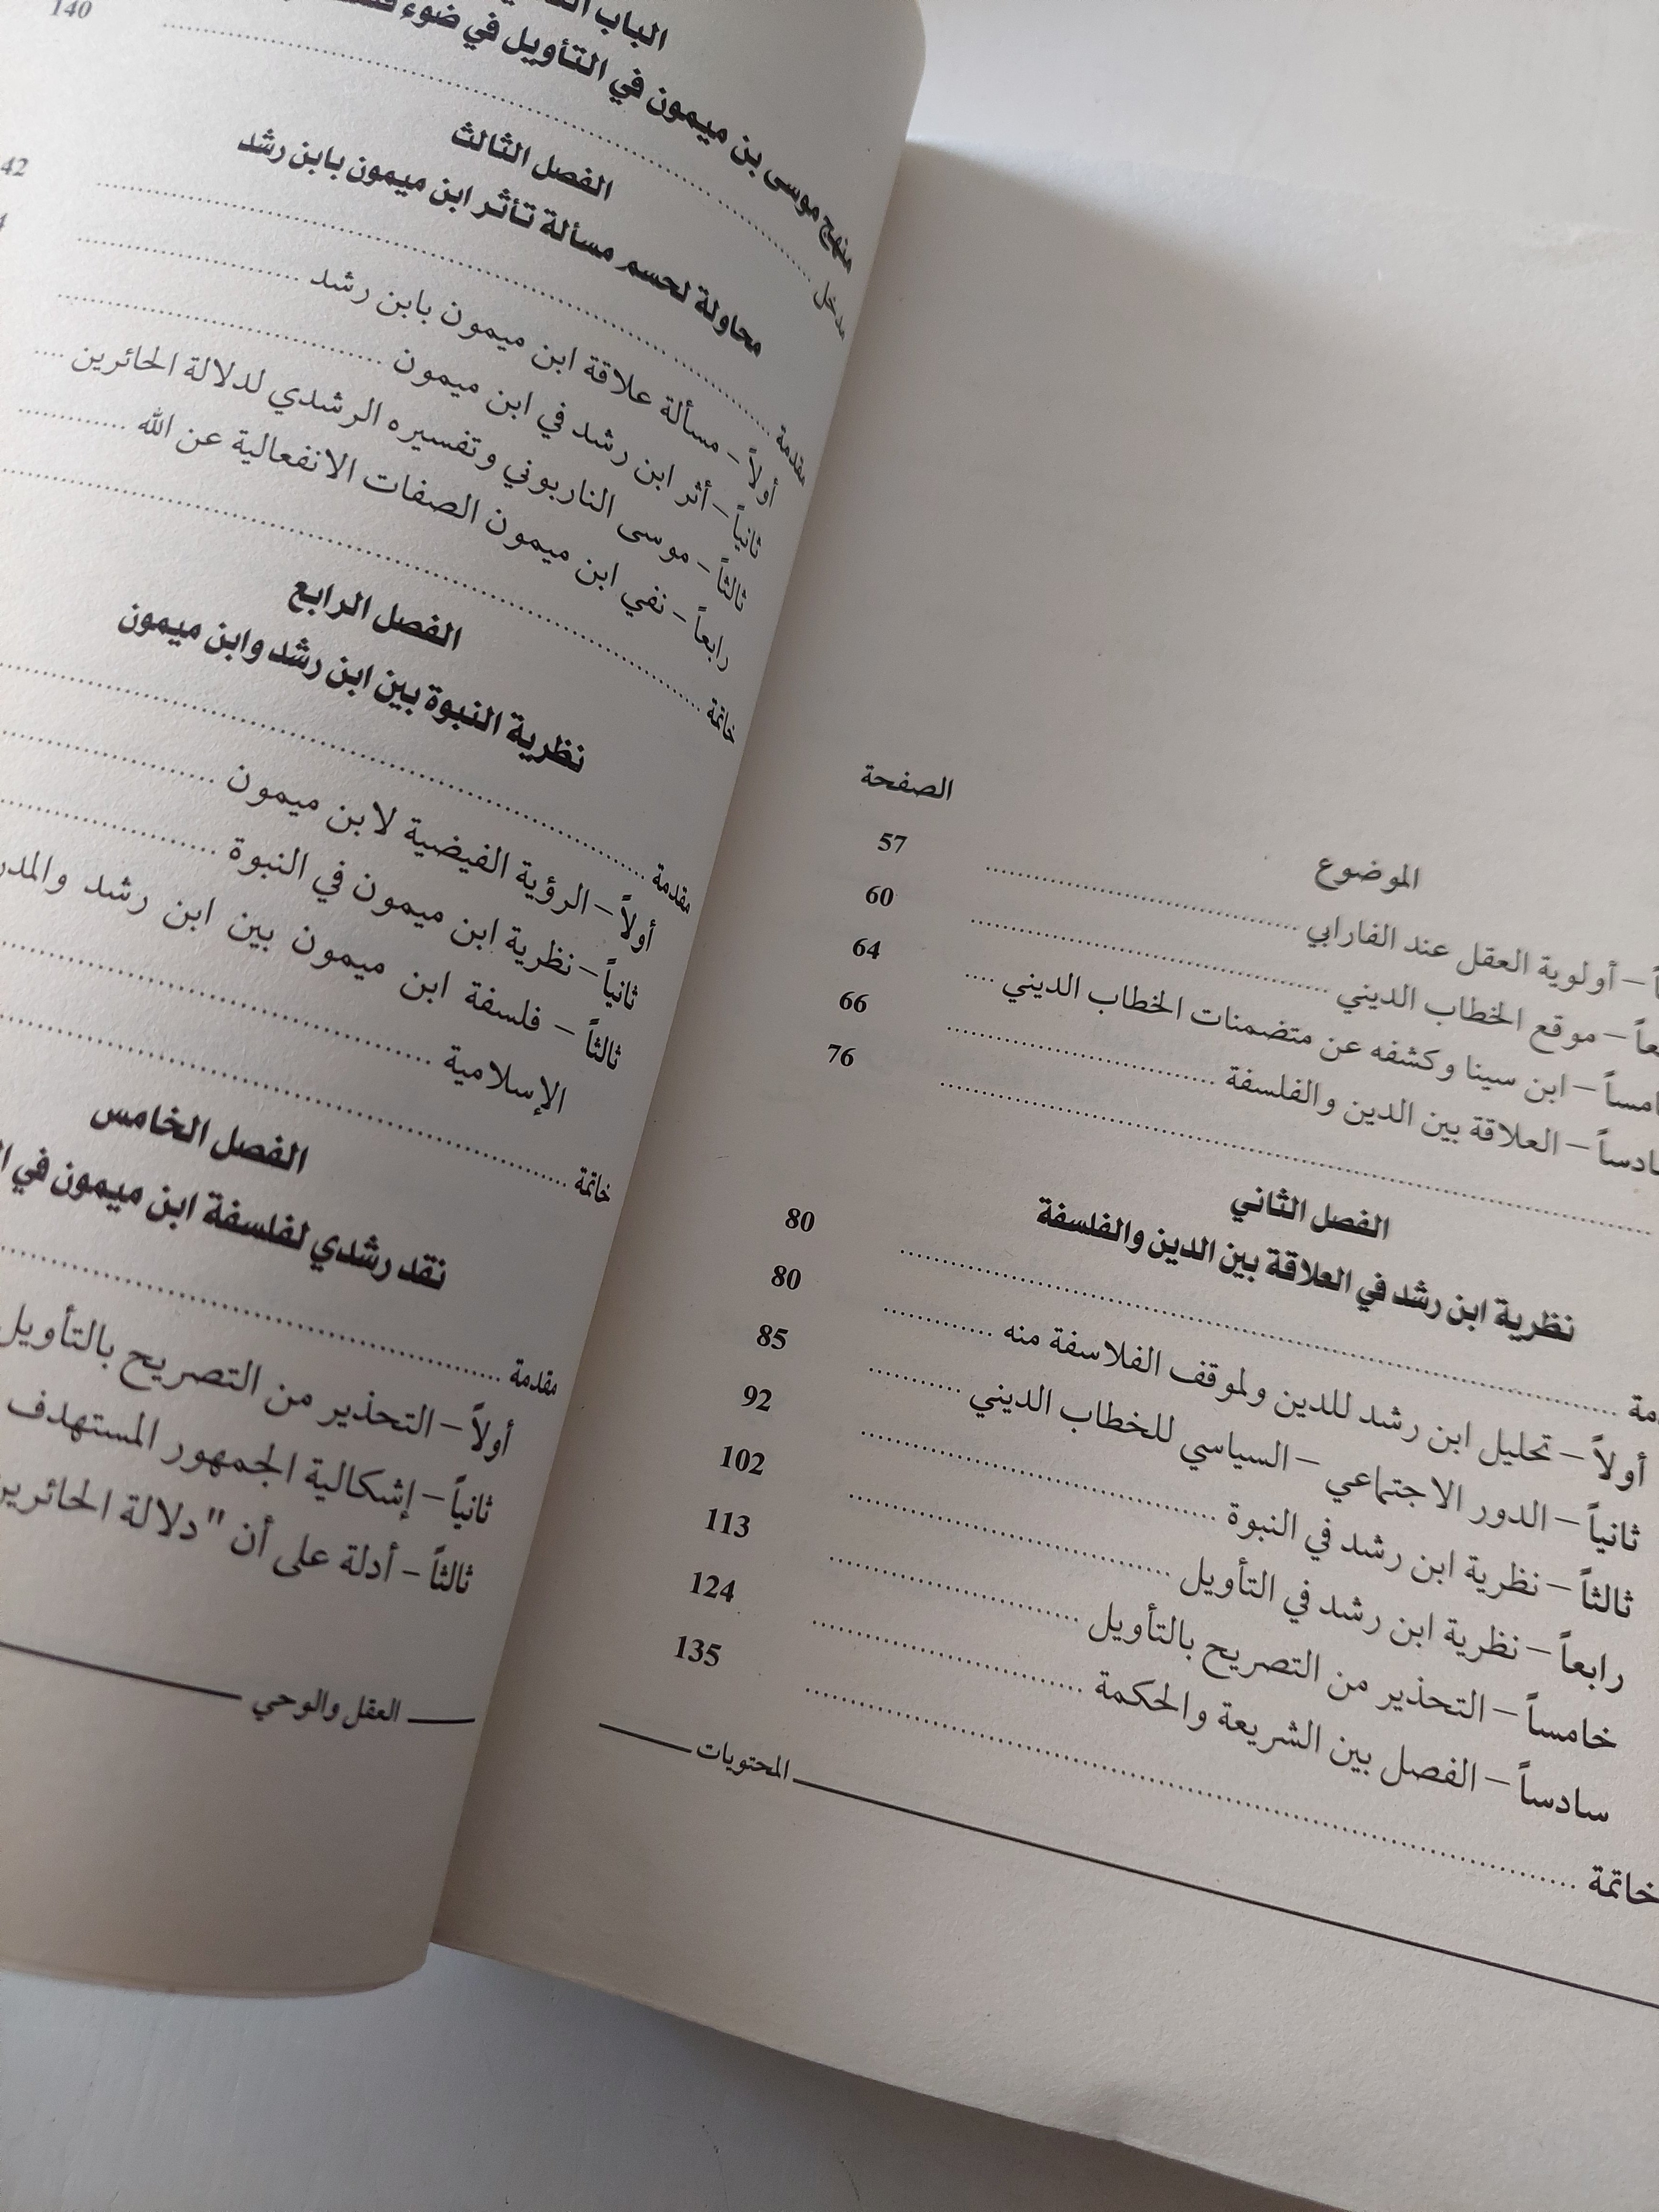 الموضوع الصفحة
– أولوية العقل عند الفارابي 57
– موقع الخطاب الديني 60
– ابن سينا وكشفه عن متضمنات الخطاب الديني 64
– العلاقة بين الدين والفلسفة 66
76
الفصل الثاني
نظرية ابن رشد في العلاقة بين الدين والفلسفة
80
أولاً – تحليل ابن رشد للدين ولموقف الفلاسفة منه 80
ثانياً – الدور الاجتماعي – السياسي للخطاب الديني 85
ثالثاً – نظرية ابن رشد في النبوة 92
رابعاً – نظرية ابن رشد في التأويل 102
خامساً – التحذير من التصريح بالتأويل 113
سادساً – الفصل بين الشريعة والحكمة 124
خاتمة 135
المحتويات
الباب
منهج موسى بن ميمون في التأويل في ضوء
مدخل 140
الفصل الثالث
محاولة لحسم مسألة تأثر ابن ميمون بابن رشد
مقدمة 42
أولاً – مسألة علاقة ابن ميمون بابن رشد
ثانياً – أثر ابن رشد في ابن ميمون
ثالثاً – موسى الناربوني وتفسيره الرشدي لدلالة الحائرين
رابعاً – نفي ابن ميمون الصفات الانفعالية عن الله
خاتمة
الفصل الرابع
نظرية النبوة بين ابن رشد وابن ميمون
مقدمة
أولاً – الرؤية الفيضية لابن ميمون
ثانياً – نظرية ابن ميمون في النبوة
ثالثاً – فلسفة ابن ميمون بين ابن رشد
الإسلامية
خاتمة
الفصل الخامس
نقد رشدي لفلسفة ابن ميمون في
مقدمة
أولاً – التحذير من التصريح بالتأويل
ثانياً – إشكالية الجمهور المستهدف
ثالثاً – أدلة على أن "دلالة الحائرين
العقل والوحي